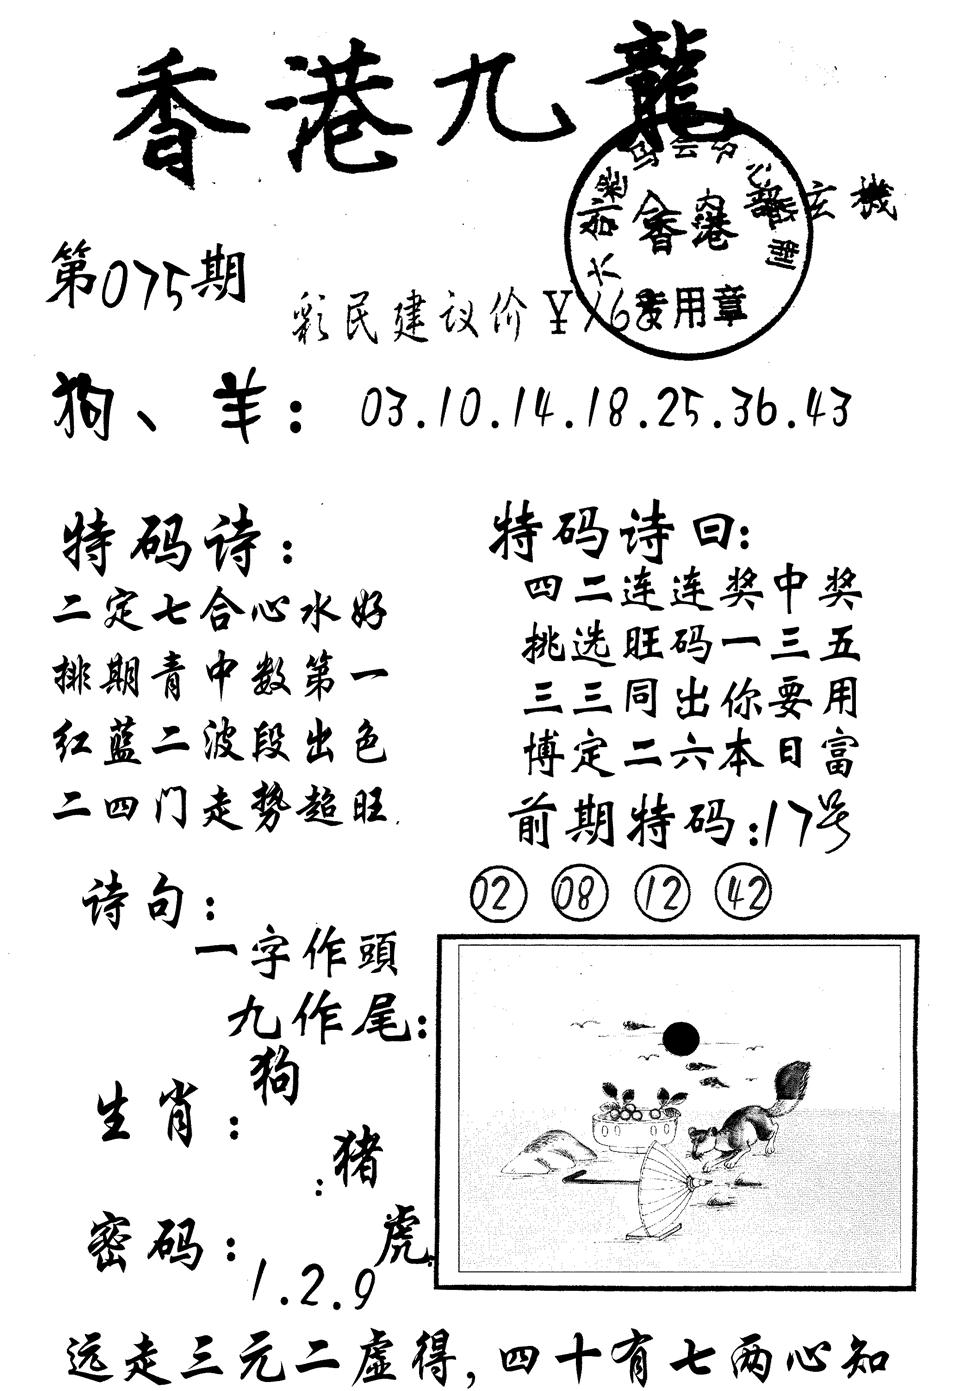 香港九龍
内部玄機
香港
专用章
第075期
彩民建议价¥168
狗、羊：03.10.14.18.25.36.43
特码诗：
二定七合心水好
排期青中数第一
红蓝二波段出色
二四门走势超旺
特码诗曰：
四二连连奖中奖
挑选旺码一三五
三三同出你要用
博定二六本日富
前期特码：17号
02 08 12 42
诗句：
一字作頭
九作尾：
生肖：狗
：猪
虎
密码：1.2.9
远走三元二虚得，四十有七两心知